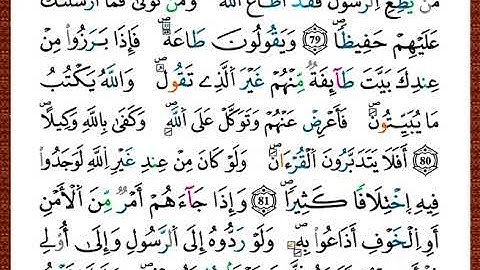 مَّنْ يُطِعِ اِ۬لرَّسُولَ فَقَدْ أَطَاعَ اَ۬للَّهَ وَمَن تَوَلَّىٰ فَمَا أَرْسَلْنَٰكَ
عَلَيْهِمْ حَفِيظاًۖ ٧٩ وَيَقُولُونَ طَاعَةٞۖ فَإِذَا بَرَزُواْ مِنْ
عِندِكَ بَيَّتَ طَآئِفَةٞ مِّنْهُمْ غَيْرَ اَ۬لذِے تَقُولُۖ وَاللَّهُ يَكْتُبُ
مَا يُبَيِّتُونَۖ فَأَعْرِضْ عَنْهُمْ وَتَوَكَّلْ عَلَى اَ۬للَّهِۖ وَكَفَىٰ بِاللَّهِ وَكِيلاًۖ
٨٠ أَفَلَا يَتَدَبَّرُونَ اَ۬لْقُرْءَانَۖ وَلَوْ كَانَ مِنْ عِندِ غَيْرِ اِ۬للَّهِ لَوَجَدُواْ
فِيهِ اِ۪خْتِلَٰفاٗ كَثِيراٗۖ ٨١ وَإِذَا جَآءَهُمْ أَمْرٞ مِّنَ اَ۬لْأَمْنِ
أَوِ اِ۬لْخَوْفِ أَذَاعُواْ بِهِۦۖ وَلَوْ رَدُّوهُ إِلَى اَ۬لرَّسُولِ وَإِلَىٰ أُوْلِے